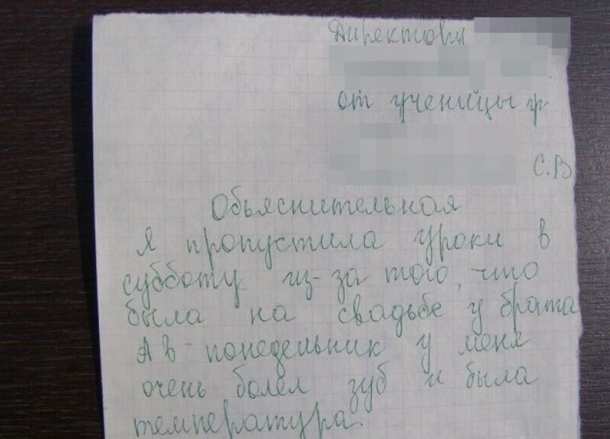 Директору
от ученицы гр
С.В
Обьяснительная
Я пропустила уроки в
субботу из-за того, что
была на свадьбе у брата
А в понедельник у меня
очень болел зуб и была
температура.